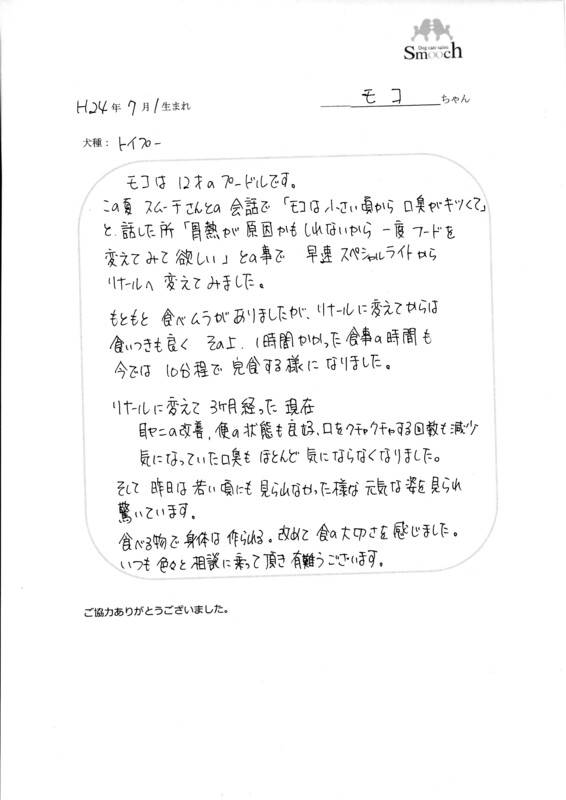 Dog care salon
Smooch
モコ ちゃん
H24年 7月 1生まれ
犬種：トイプー
モコは 12才のプードルです。
この夏 スムーチさんとの 会話で 「モコは 小さい頃から 口臭がキツくて」
と 話した所 「胃熱が 原因かもしれないから 一度 フードを
変えてみて欲しい」 との事で 早速 スペシャルライトから
リナールへ 変えてみました。
もともと 食べムラがありましたが、リナールに変えてからは
食いつきも良く その上、1時間かかった食事の時間も
今では 10分程で 完食する様に なりました。
リナールに変えて 3ヶ月経った 現在
目ヤニの改善、便の状態も良好、口をクチャクチャする回数も減少
気になっていた口臭も ほとんど 気にならなくなりました。
そして 昨日は 若い頃にも 見られなかった様な 元気な 姿を見られ
驚いています。
食べる物で 身体は 作られる。改めて 食の大切さを 感じました。
いつも 色々と 相談に乗って頂き 有難うございます。
ご協力ありがとうございました。